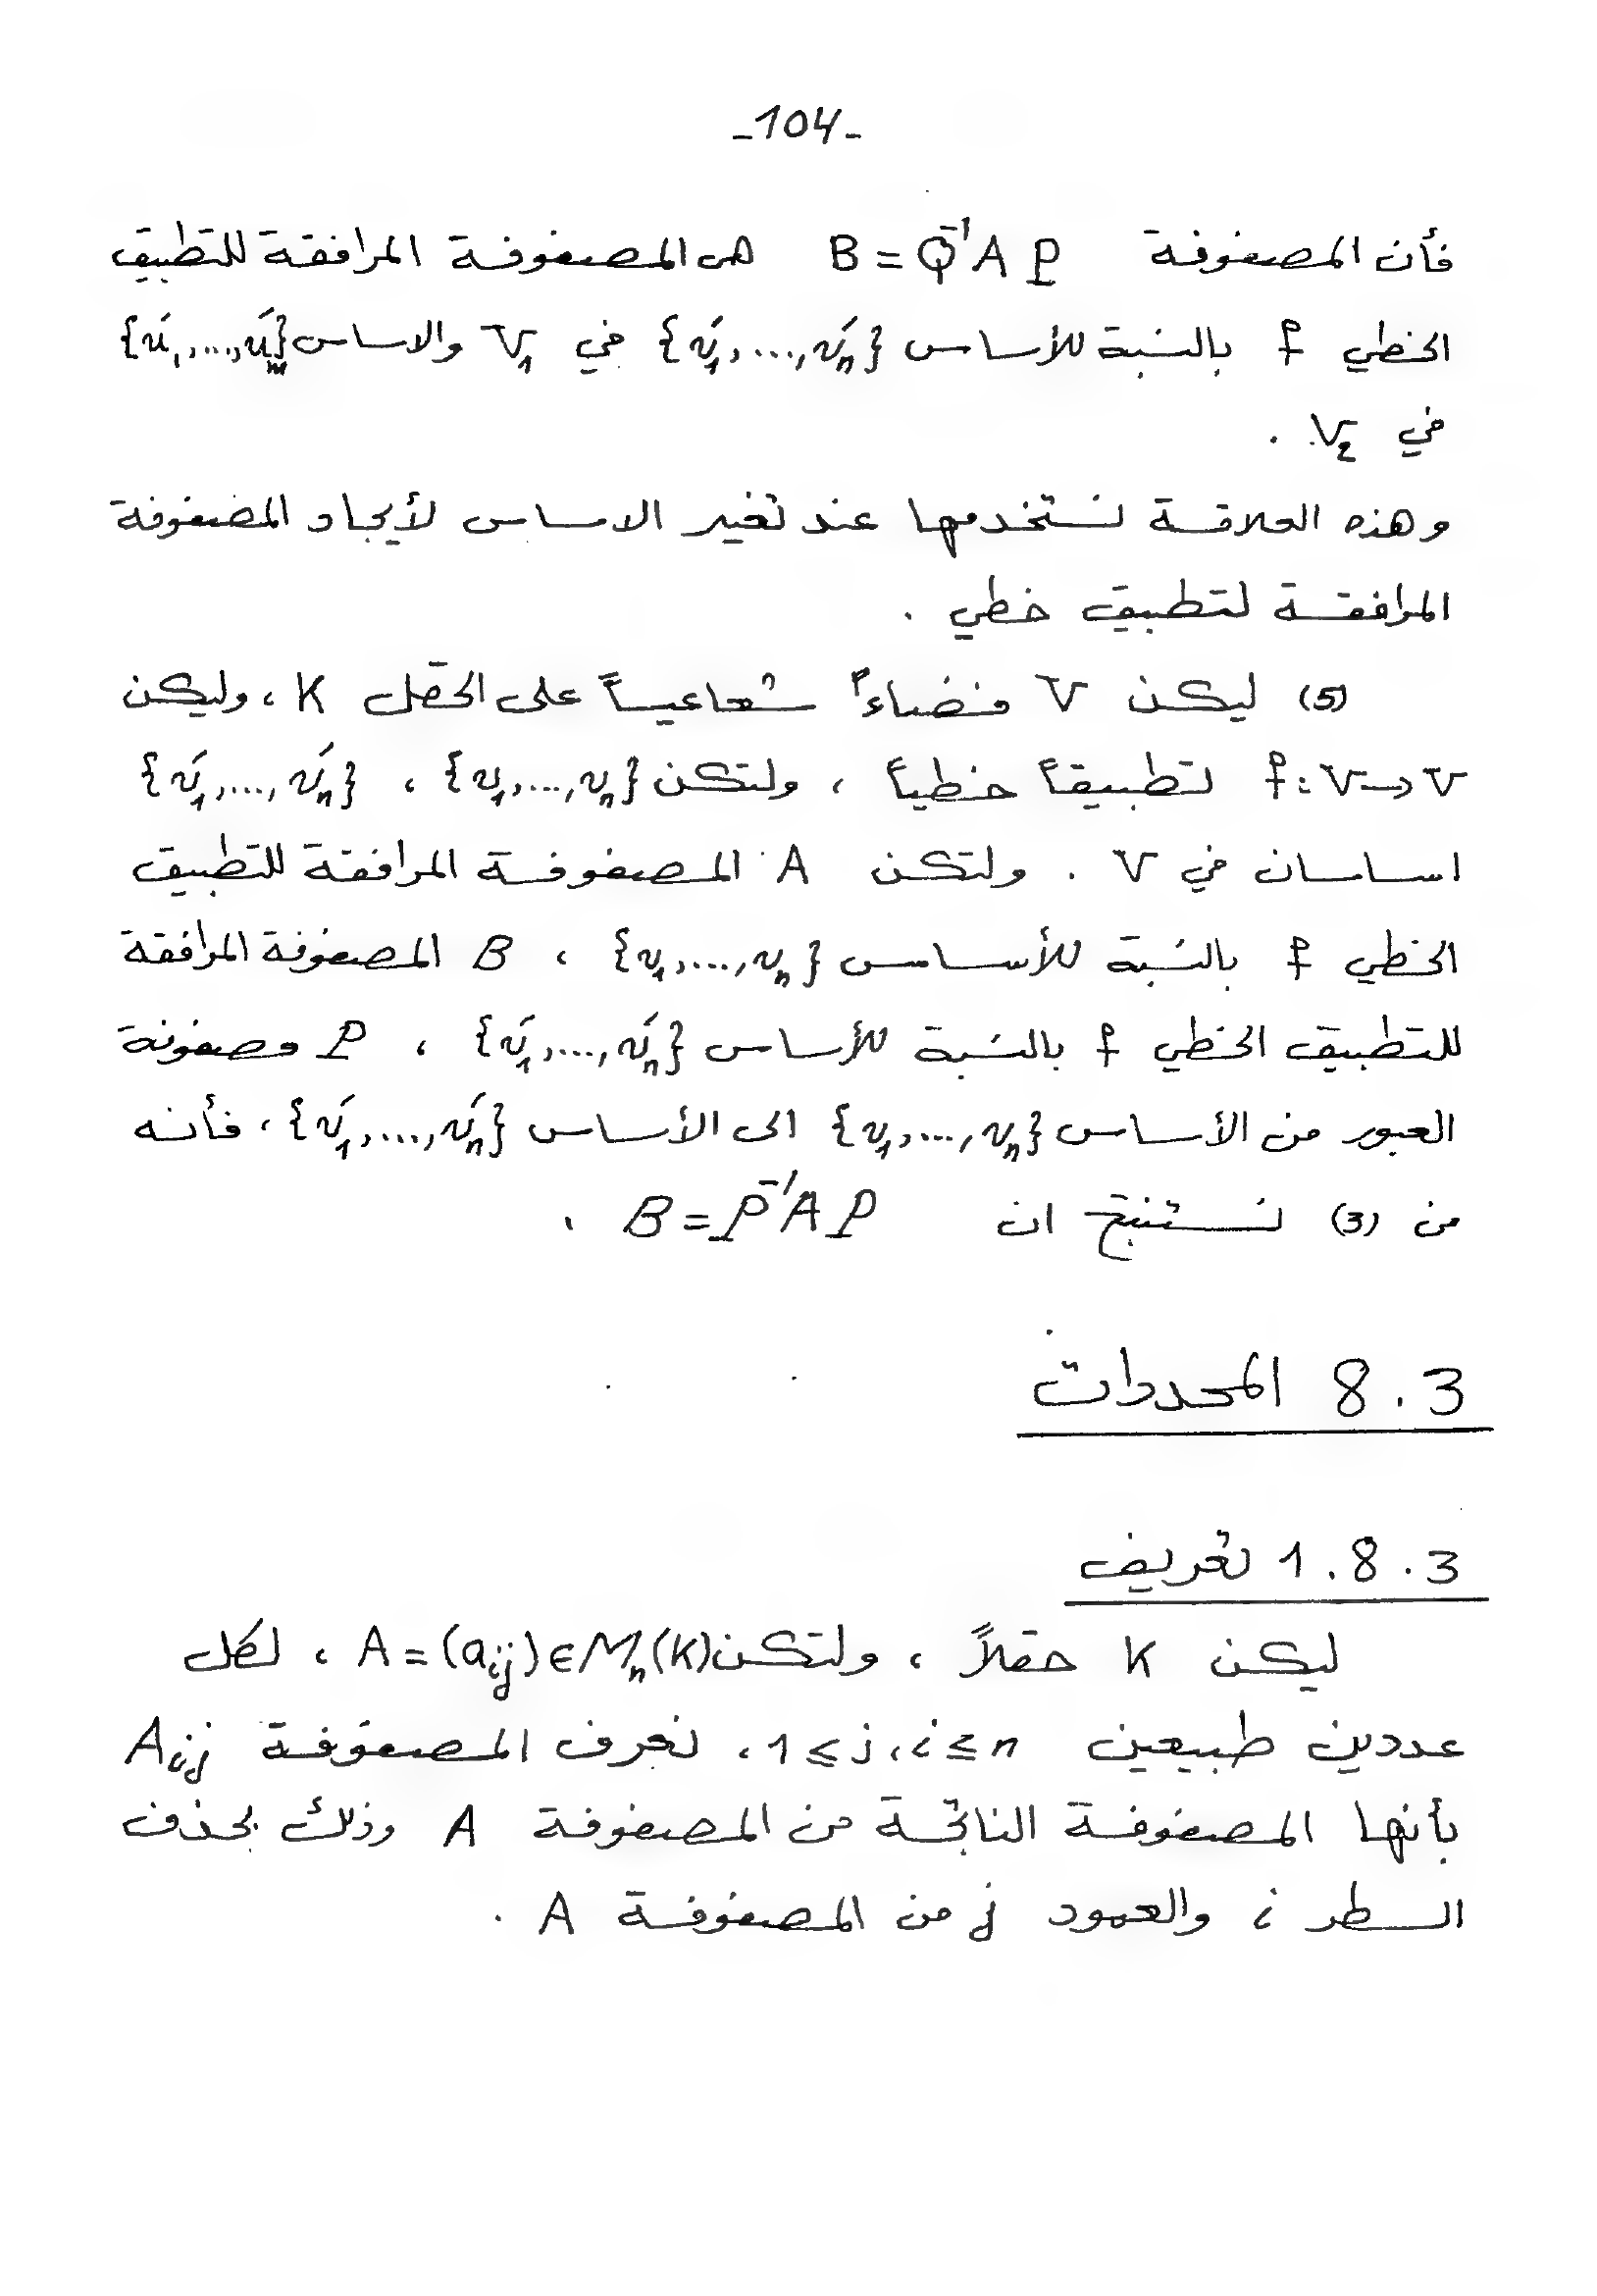 -104-
فأن المصفوفة B = Q⁻¹AP هي المصفوفة المرافقة للتطبيق
الخطي f بالنسبة للأساس {v'₁,...,v'ₙ} في V₁ والاساس {u'₁,...,u'ₘ}
في V₂ .
وهذه العلاقة نستخدمها عند تغير الاساس لأيجاد المصفوفة
المرافقة لتطبيق خطي .
(5) ليكن V فضاءً شعاعياً على الحقل K ، وليكن
f: V → V تطبيقاً خطياً ، ولتكن {v₁,...,vₙ} ، {v'₁,...,v'ₙ}
اساسان في V . ولتكن A المصفوفة المرافقة للتطبيق
الخطي f بالنسبة للأساس {v₁,...,vₙ} ، B المصفوفة المرافقة
للتطبيق الخطي f بالنسبة للأساس {v'₁,...,v'ₙ} ، P مصفوفة
العبور من الأساس {v₁,...,vₙ} الى الأساس {v'₁,...,v'ₙ} ، فأنه
من (3) نستنتج ان B = P⁻¹AP .
8.3 المحددات
1.8.3 تعريف
ليكن K حقلاً ، ولتكن A = (aᵢⱼ) ∈ Mₙ(K) ، لكل
عددين طبيعين 1 ≤ j, i ≤ n ، نعرف المصفوفة Aᵢⱼ
بأنها المصفوفة الناتجة من المصفوفة A وذلك بحذف
السطر i والعمود j من المصفوفة A .